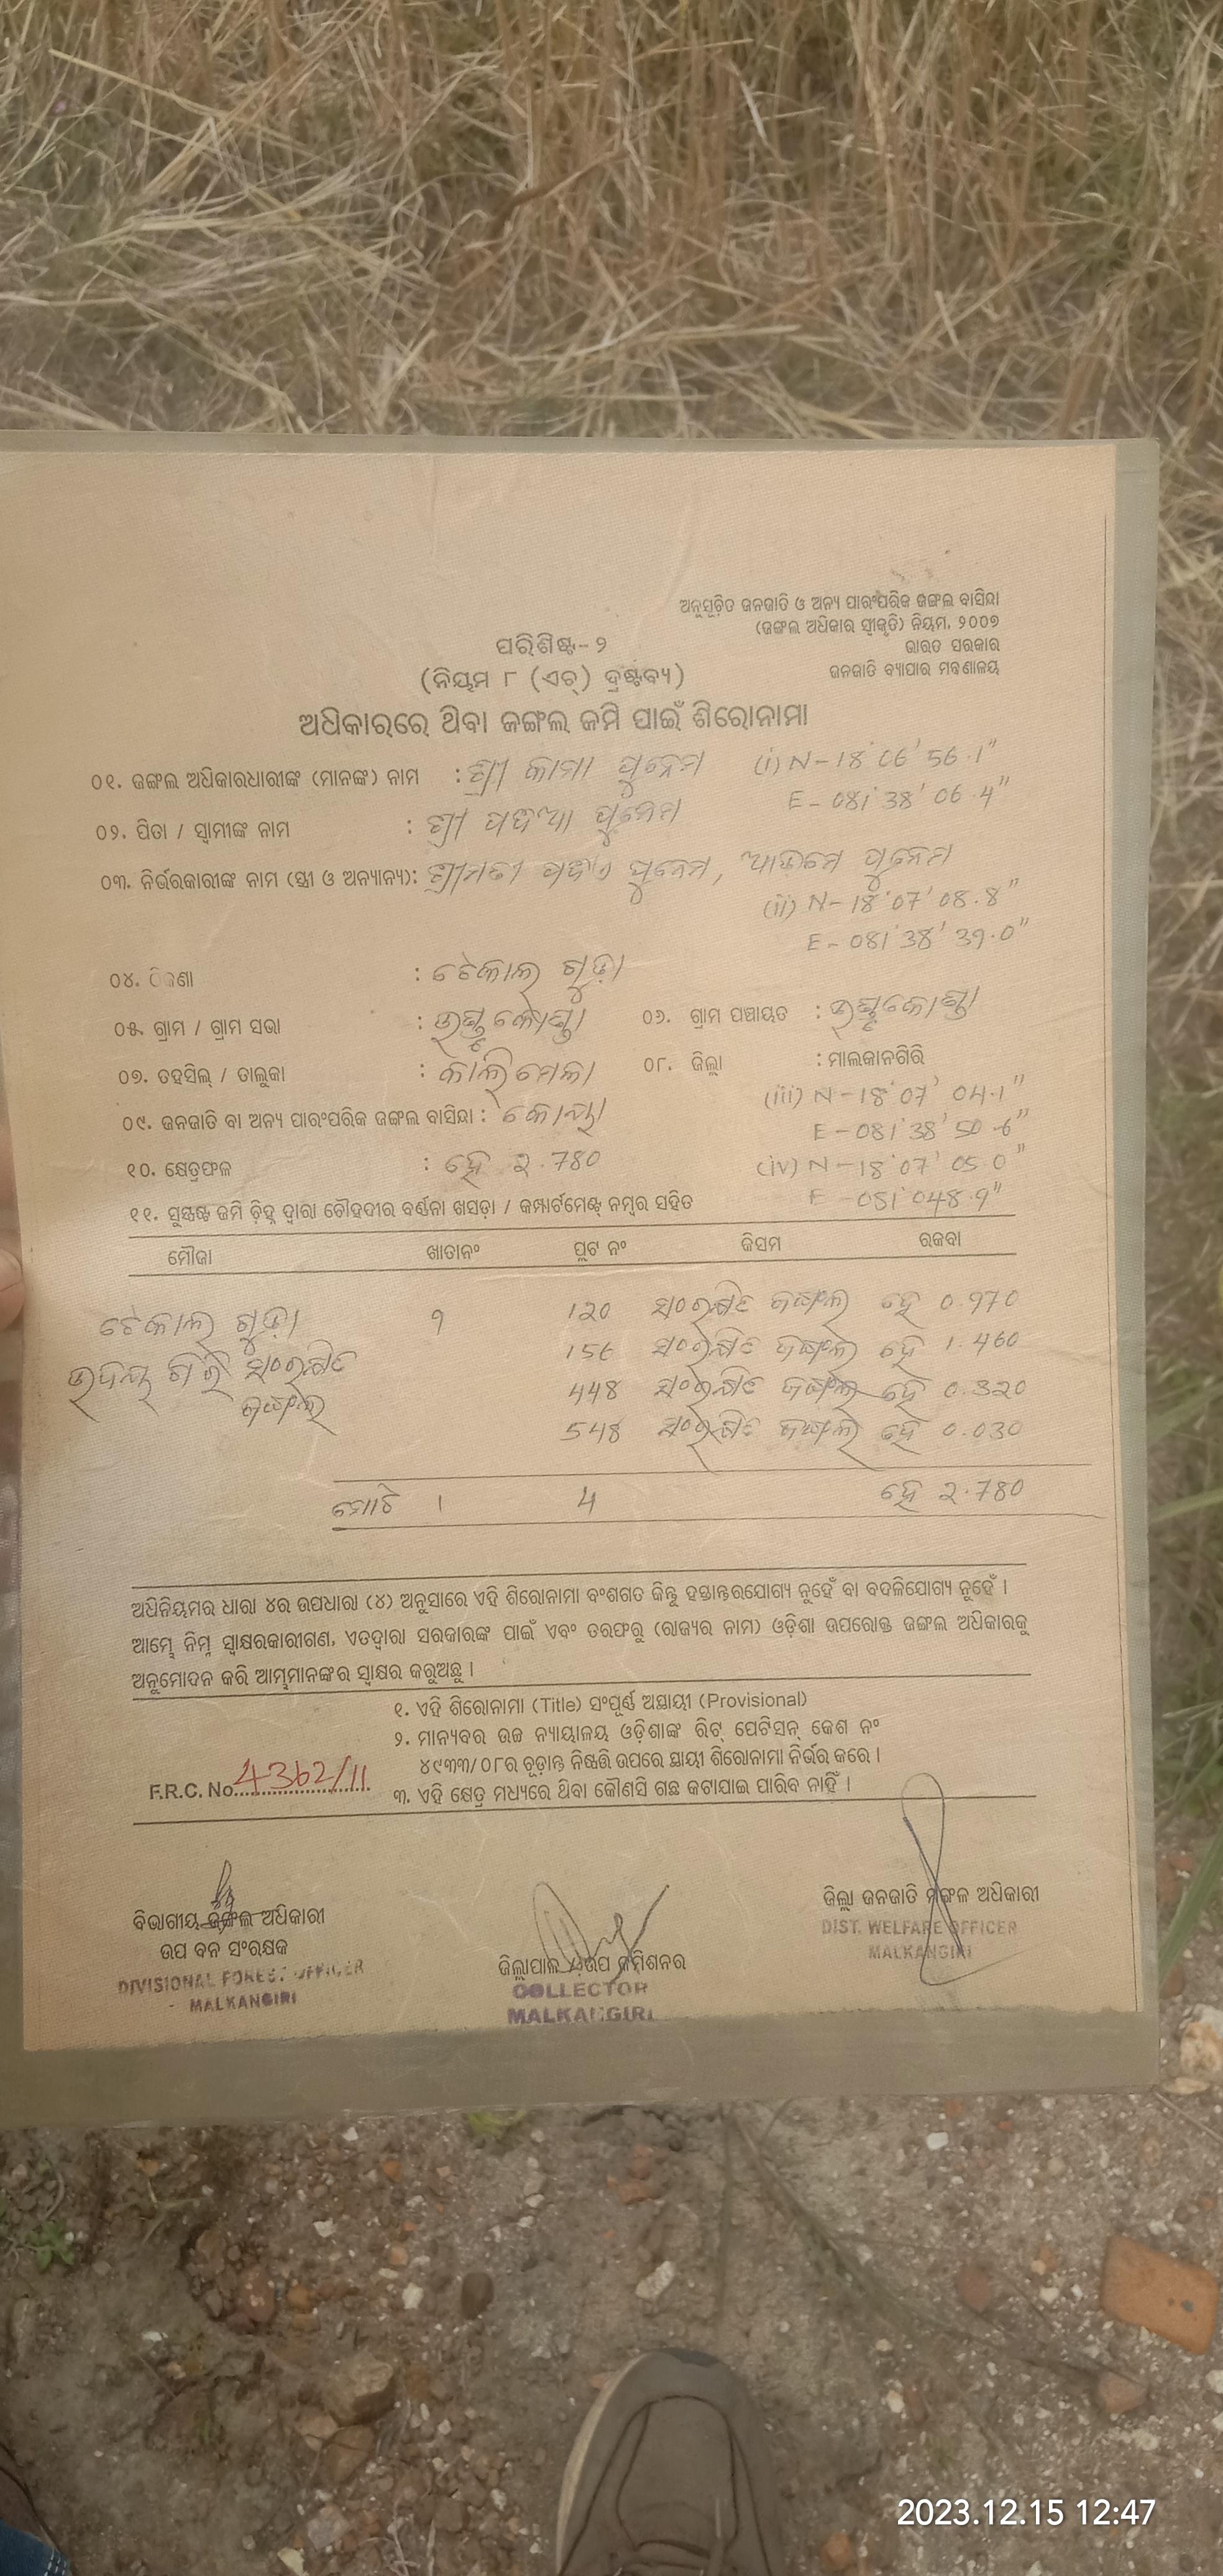 ଅନୁସୂଚିତ ଜନଜାତି ଓ ଅନ୍ୟ ପାରଂପରିକ ଜଙ୍ଗଲ ବାସିନ୍ଦା
(ଜଙ୍ଗଲ ଅଧିକାର ସ୍ୱୀକୃତି) ନିୟମ, ୨୦୦୭
ଭାରତ ସରକାର
ଜନଜାତି ବ୍ୟାପାର ମନ୍ତ୍ରଣାଳୟ
ପରିଶିଷ୍ଟ-୨
(ନିୟମ ୮ (ଏଚ୍) ଦ୍ରଷ୍ଟବ୍ୟ)
ଅଧିକାରରେ ଥିବା ଜଙ୍ଗଲ ଜମି ପାଇଁ ଶିରୋନାମା
୦୧. ଜଙ୍ଗଲ ଅଧିକାରଧାରୀଙ୍କ (ମାନଙ୍କ) ନାମ : ଶ୍ରୀ କାମା ପୁନେମ (i) N-18°06'56.1"
E-081°38'06.4"
୦୨. ପିତା / ସ୍ୱାମୀଙ୍କ ନାମ : ଶ୍ରୀ ପୁନେମ
୦୩. ନିର୍ଭରକାରୀଙ୍କ ନାମ (ସ୍ତ୍ରୀ ଓ ଅନ୍ୟାନ୍ୟ): ଶ୍ରୀମତୀ ପୁନେମ, ପୁନେମ
(ii) N-18°07'08.8"
E-081°38'39.0"
୦୪. ଠିକଣା : ଟେକାଲ ଗୁଡ଼ା
୦୫. ଗ୍ରାମ / ଗ୍ରାମ ସଭା : ୦୬. ଗ୍ରାମ ପଞ୍ଚାୟତ :
୦୭. ତହସିଲ୍ / ତାଲୁକା : କାଲିମେଳା ୦୮. ଜିଲ୍ଲା : ମାଲକାନଗିରି
(iii) N-18°07'04.1"
୦୯. ଜନଜାତି ବା ଅନ୍ୟ ପାରଂପରିକ ଜଙ୍ଗଲ ବାସିନ୍ଦା : କୋୟା
E-081°38'50.6"
୧୦. କ୍ଷେତ୍ରଫଳ : ହେ ୨.780 (iv) N-18°07'05.0"
E-081°048.9"
୧୧. ସୁସ୍ପଷ୍ଟ ଜମି ଚିହ୍ନ ଦ୍ୱାରା ଚୌହଦୀର ବର୍ଣ୍ଣନା ଖସଡ଼ା / କମ୍ପାର୍ଟମେଣ୍ଟ୍ ନମ୍ବର ସହିତ
ମୌଜା ଖାତାନଂ ପ୍ଲଟ ନଂ କିସମ ରକବା
ଟେକାଲ ଗୁଡ଼ା ୧ 120 ସଂରକ୍ଷିତ ଜଙ୍ଗଲ ହେ 0.970
ଗିରି ସଂରକ୍ଷିତ 156 ସଂରକ୍ଷିତ ଜଙ୍ଗଲ ହେ 1.460
ଜଙ୍ଗଲ 448 ସଂରକ୍ଷିତ ଜଙ୍ଗଲ ହେ 0.320
548 ସଂରକ୍ଷିତ ଜଙ୍ଗଲ ହେ 0.030
ମୋଟ 1 4 ହେ ୨.780
ଅଧିନିୟମର ଧାରା ୪ର ଉପଧାରା (୪) ଅନୁସାରେ ଏହି ଶିରୋନାମା ବଂଶଗତ କିନ୍ତୁ ହସ୍ତାନ୍ତରଯୋଗ୍ୟ ନୁହେଁ ବା ବଦଳିଯୋଗ୍ୟ ନୁହେଁ ।
ଆମ୍ଭେ ନିମ୍ନ ସ୍ୱାକ୍ଷରକାରୀଗଣ, ଏତଦ୍ୱାରା ସରକାରଙ୍କ ପାଇଁ ଏବଂ ତରଫରୁ (ରାଜ୍ୟର ନାମ) ଓଡ଼ିଶା ଉପରୋକ୍ତ ଜଙ୍ଗଲ ଅଧିକାରକୁ
ଅନୁମୋଦନ କରି ଆମ୍ଭମାନଙ୍କର ସ୍ୱାକ୍ଷର କରୁଅଛୁ ।
୧. ଏହି ଶିରୋନାମା (Title) ସଂପୂର୍ଣ୍ଣ ଅସ୍ଥାୟୀ (Provisional)
୨. ମାନ୍ୟବର ଉଚ୍ଚ ନ୍ୟାୟାଳୟ ଓଡ଼ିଶାଙ୍କ ରିଟ୍ ପେଟିସନ୍ କେଶ ନଂ
୪୯୩୩/୦୮ର ଚୂଡ଼ାନ୍ତ ନିଷ୍ପତ୍ତି ଉପରେ ସ୍ଥାୟୀ ଶିରୋନାମା ନିର୍ଭର କରେ ।
F.R.C. No. 4362/11
୩. ଏହି କ୍ଷେତ୍ର ମଧ୍ୟରେ ଥିବା କୌଣସି ଗଛ କଟାଯାଇ ପାରିବ ନାହିଁ ।
ବିଭାଗୀୟ ଜଙ୍ଗଲ ଅଧିକାରୀ
ଉପ ବନ ସଂରକ୍ଷକ
DIVISIONAL FOREST OFFICER
MALKANGIRI
ଜିଲ୍ଲାପାଳ ଓ ଉପ କମିଶନର
COLLECTOR
MALKANGIRI
ଜିଲ୍ଲା ଜନଜାତି ମଙ୍ଗଳ ଅଧିକାରୀ
DIST. WELFARE OFFICER
MALKANGIRI
2023.12.15 12:47